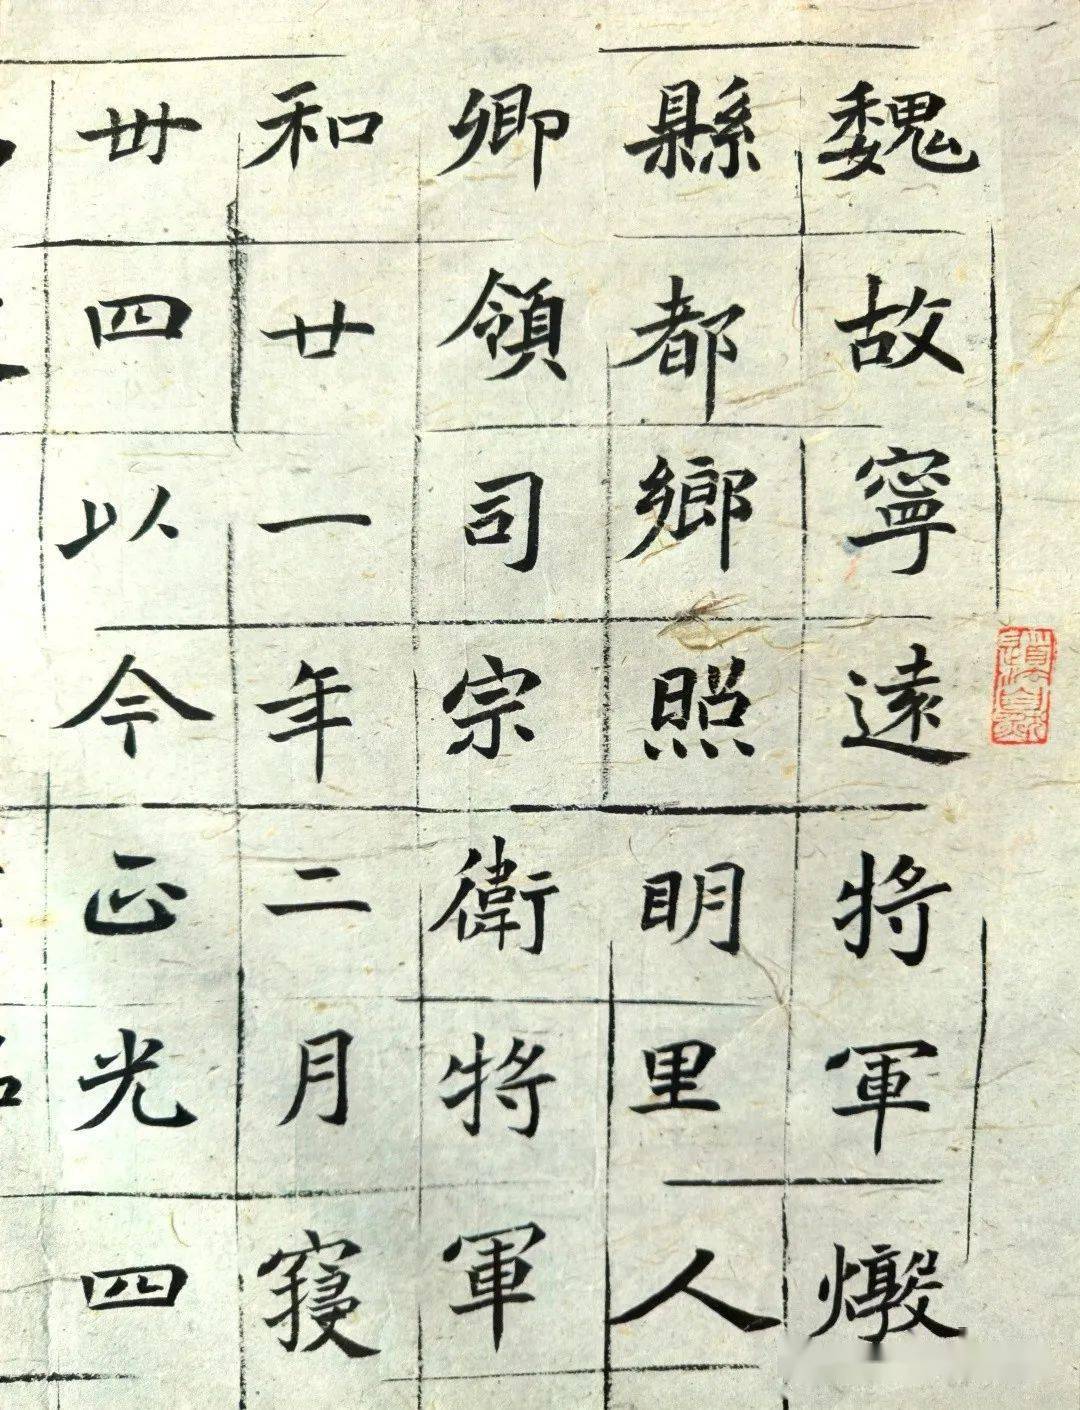 魏故寧遠將軍燉
縣都鄉照明里人
卿領司宗衛將軍
和廿一年二月寑
卅四以今正光四